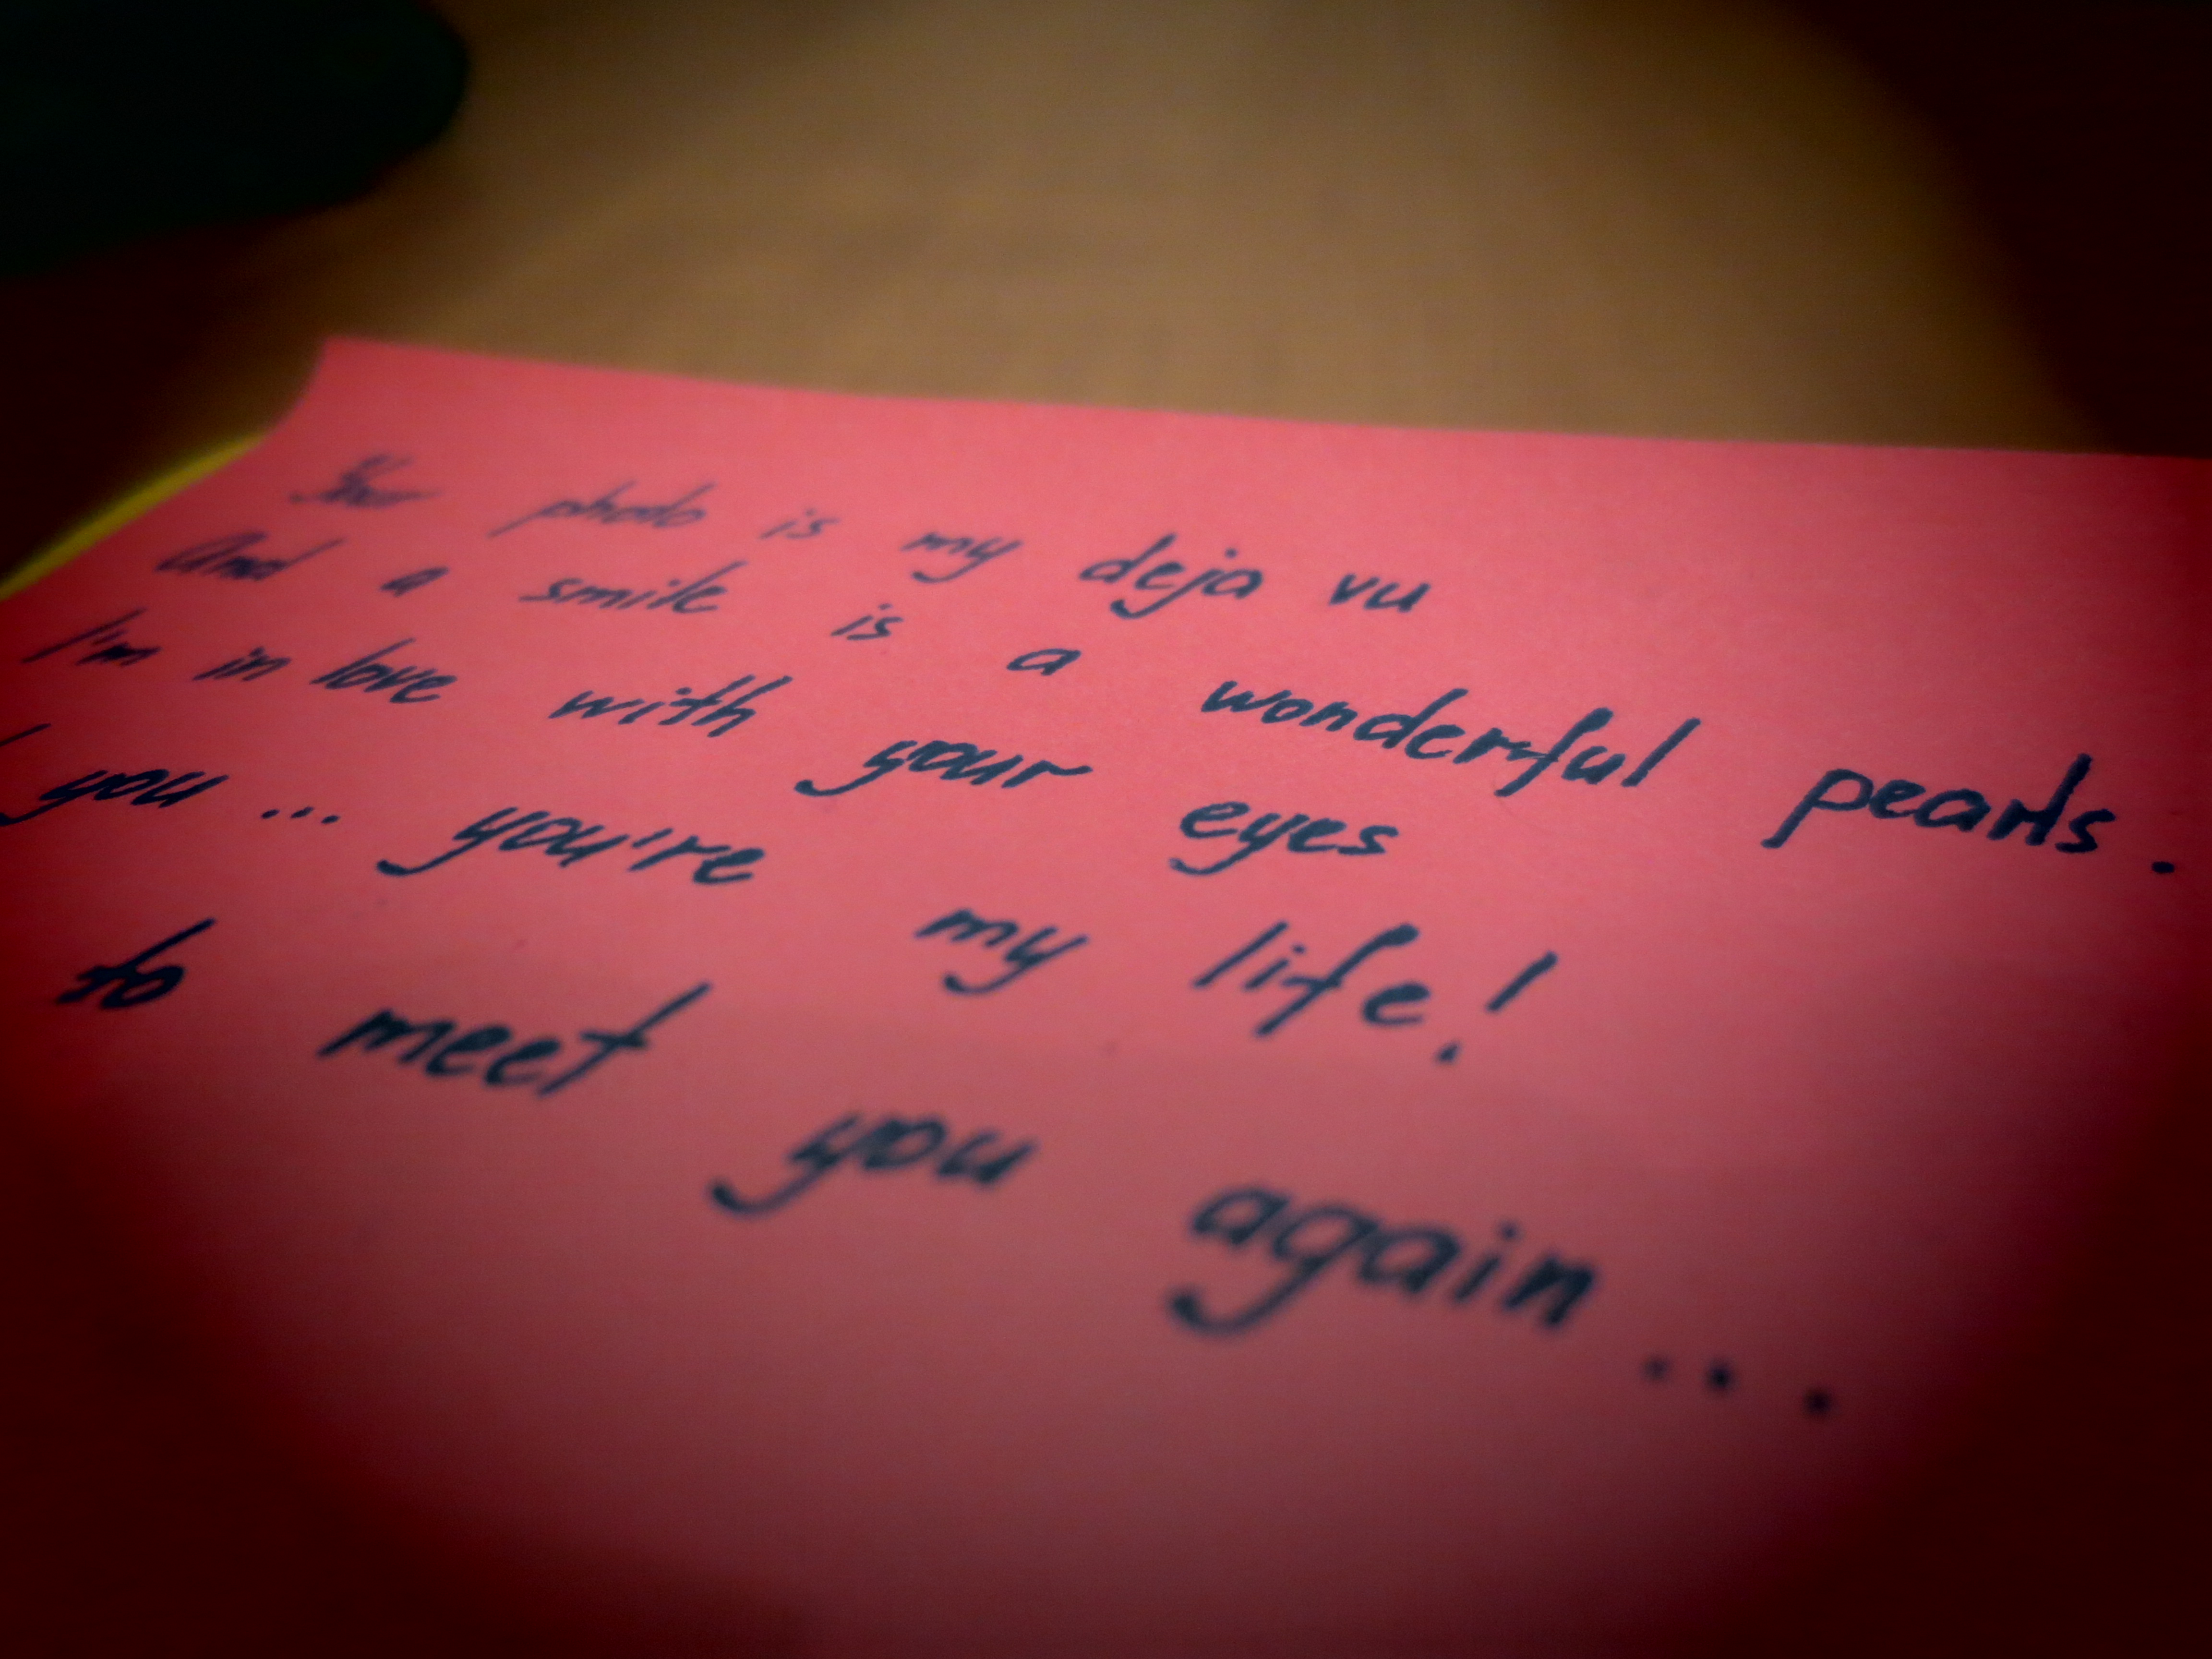 Your photo is my deja vu
And a smile is a wonderful pearls.
I'm in love with your eyes
you... you're my life!
to meet you again...